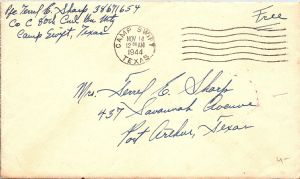 Pfc Terrel E. Sharp 38671654
Co C 80th
Camp Swift, Texas
Free
CAMP SWIFT
NOV 14
AM
1944
TEXAS
Mrs. Terrel E. Sharp
437 Savannah Avenue
Port Arthur, Texas